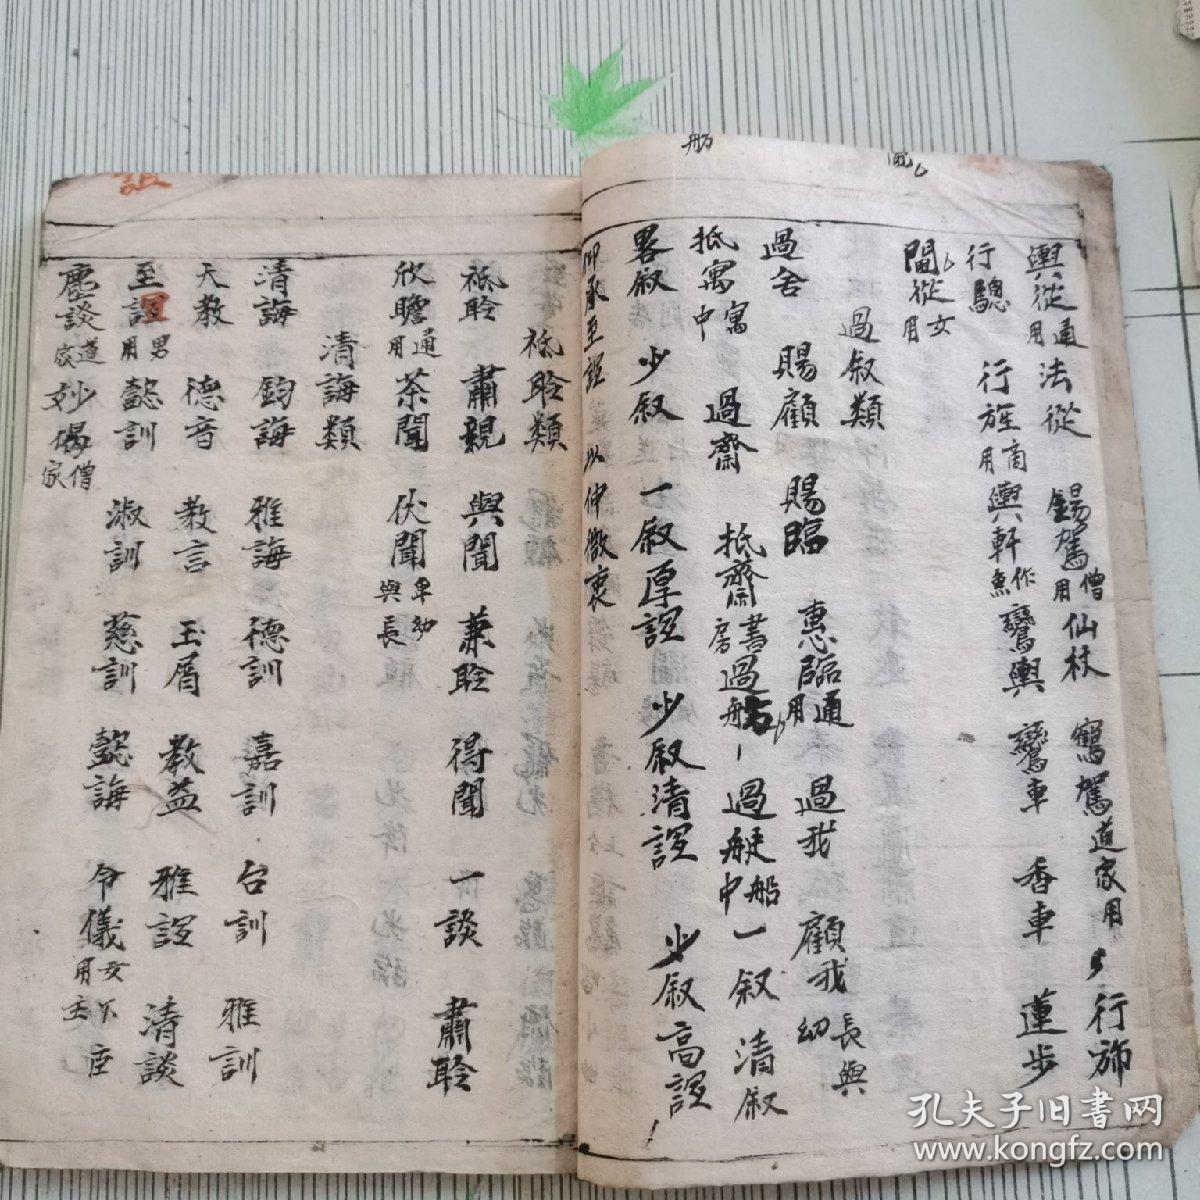 輿從通用 法從 錫駕僧用 仙杖 鸞駕道家用 行斾
行驄 行旌商用 輿軒 鸞輿 鸞車 香車 蓮步
閫從女用
過叙類
過舍 賜顧 賜臨 惠臨通用 過我 顧我長與幼
抵寓中 過齋 抵齋 過船中 一叙 清叙
畧叙 少叙 一叙厚誼 少叙清誼 少叙高誼
仰承至誼 以伸微衷
祗聆類
祗聆 肅親 與聞 兼聆 得聞 一談 肅聆
欣瞻通用 恭聞 伏聞卑幼與長
清誨類
清誨 鈞誨 雅誨 德訓 嘉訓 台訓 雅訓
大教 德音 教言 玉屑 教益 雅誼 清談
至誼男用 懿訓 淑訓 慈訓 懿誨 令儀女用
塵談道家 妙偈僧家
孔夫子旧书网
www.kongfz.com